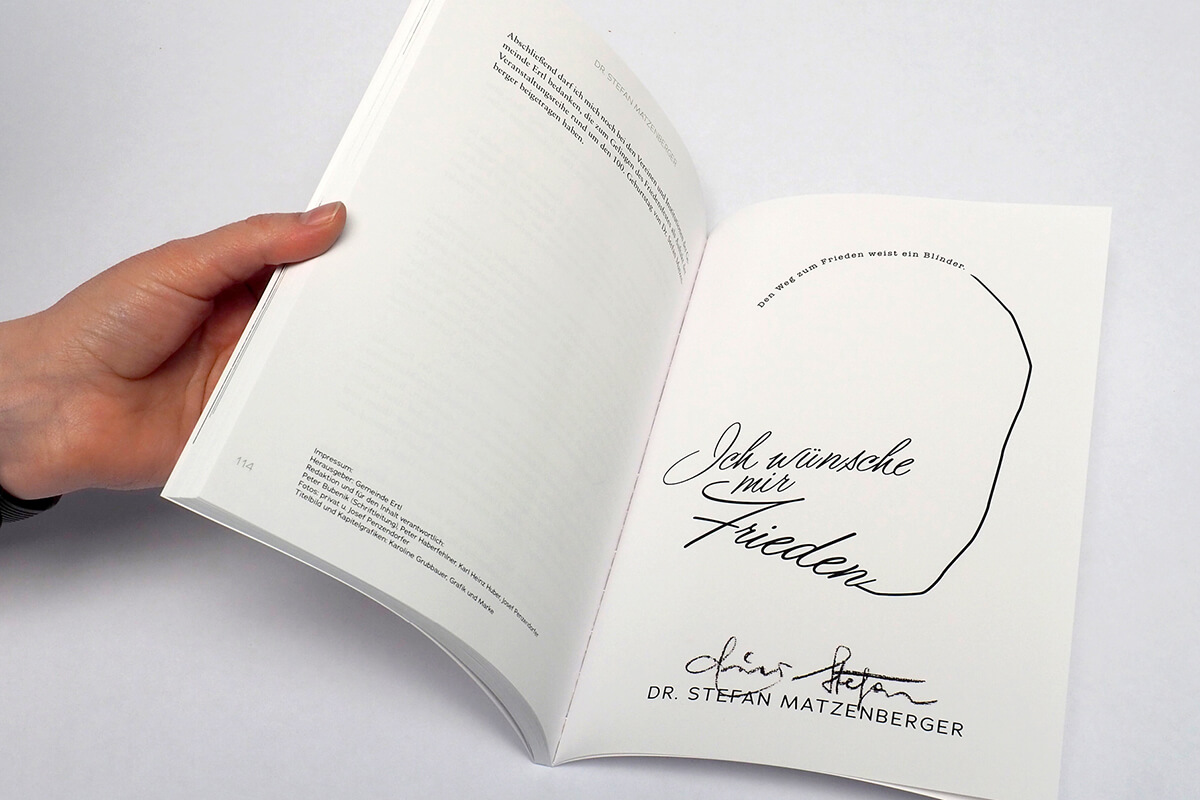 DR. STEFAN MATZENBERGER
Abschließend darf ich mich noch bei den Vereinen und Institutionen der Ge-
meinde Ertl bedanken, die zum Gelingen des Friedensfestes als Auftakt der
Veranstaltungsreihe rund um den 100. Geburtstag von Dr. Stefan Matzen-
berger beigetragen haben.
114
Impressum:
Herausgeber: Gemeinde Ertl
Redaktion und für den Inhalt verantwortlich:
Peter Bubenik (Schriftleitung), Peter Haberfehlner, Karl Heinz Huber, Josef Penzendorfer
Fotos: privat u. Josef Penzendorfer
Titelbild und Kapitelgrafiken: Karoline Grubbauer, Grafik und Marke
Den Weg zum Frieden weist ein Blinder.
Ich wünsche
mir
Frieden
Stefan
DR. STEFAN MATZENBERGER